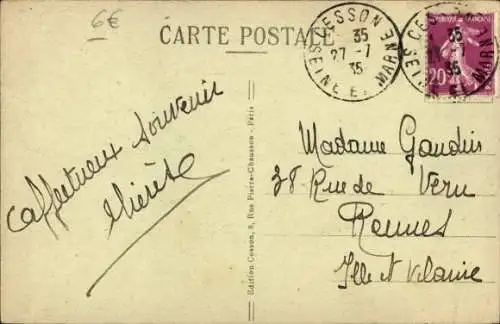 6€
CARTE POSTALE
CESSON
35
27-7
35
SEINE ET MARNE
35
35
20
Affectueux souvenir
Edition Cesson, 8, Rue Pierre-Chausson - Paris
Madame Gaudin
38 Rue de Vern
Rennes
Ille et Vilaine